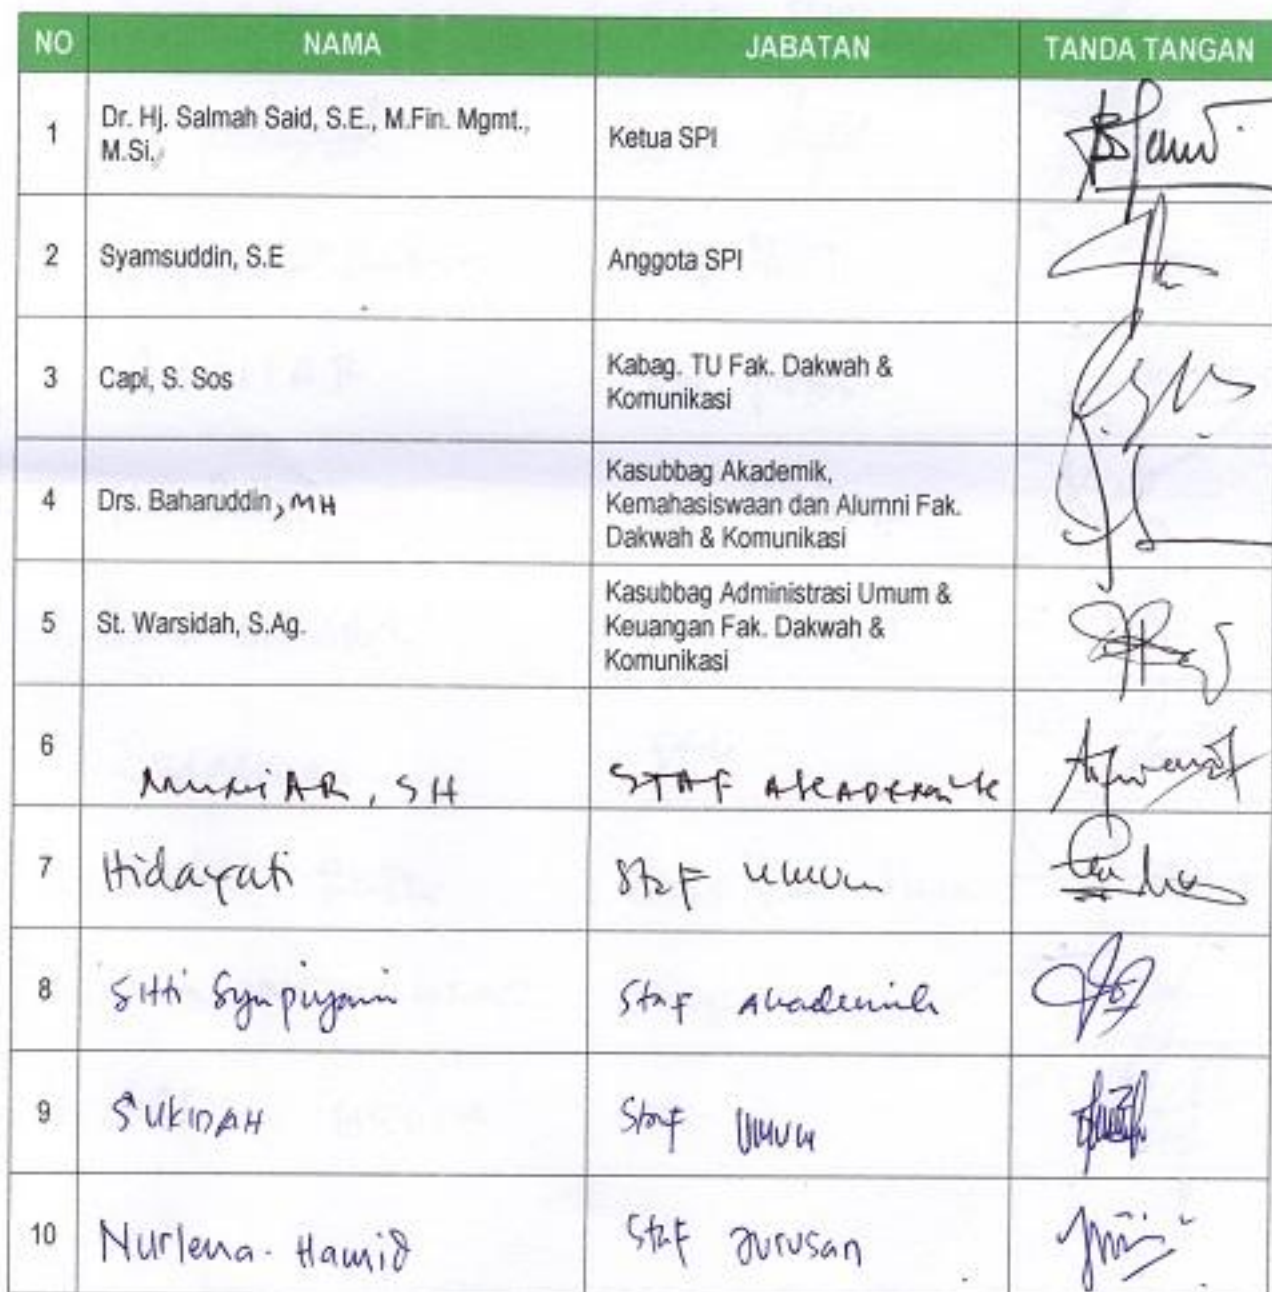 NO NAMA JABATAN TANDA TANGAN
1 Dr. Hj. Salmah Said, S.E., M.Fin. Mgmt., M.Si. Ketua SPI
2 Syamsuddin, S.E Anggota SPI
3 Capi, S. Sos Kabag. TU Fak. Dakwah & Komunikasi
4 Drs. Baharuddin, MH Kasubbag Akademik, Kemahasiswaan dan Alumni Fak. Dakwah & Komunikasi
5 St. Warsidah, S.Ag. Kasubbag Administrasi Umum & Keuangan Fak. Dakwah & Komunikasi
6 SH STAF AKADEMIK
7 Hidayati Staf umum
8 Sitti Staf Akademik
9 SUKIDAH Staf Umum
10 Nurlena. Hamid Staf Jurusan